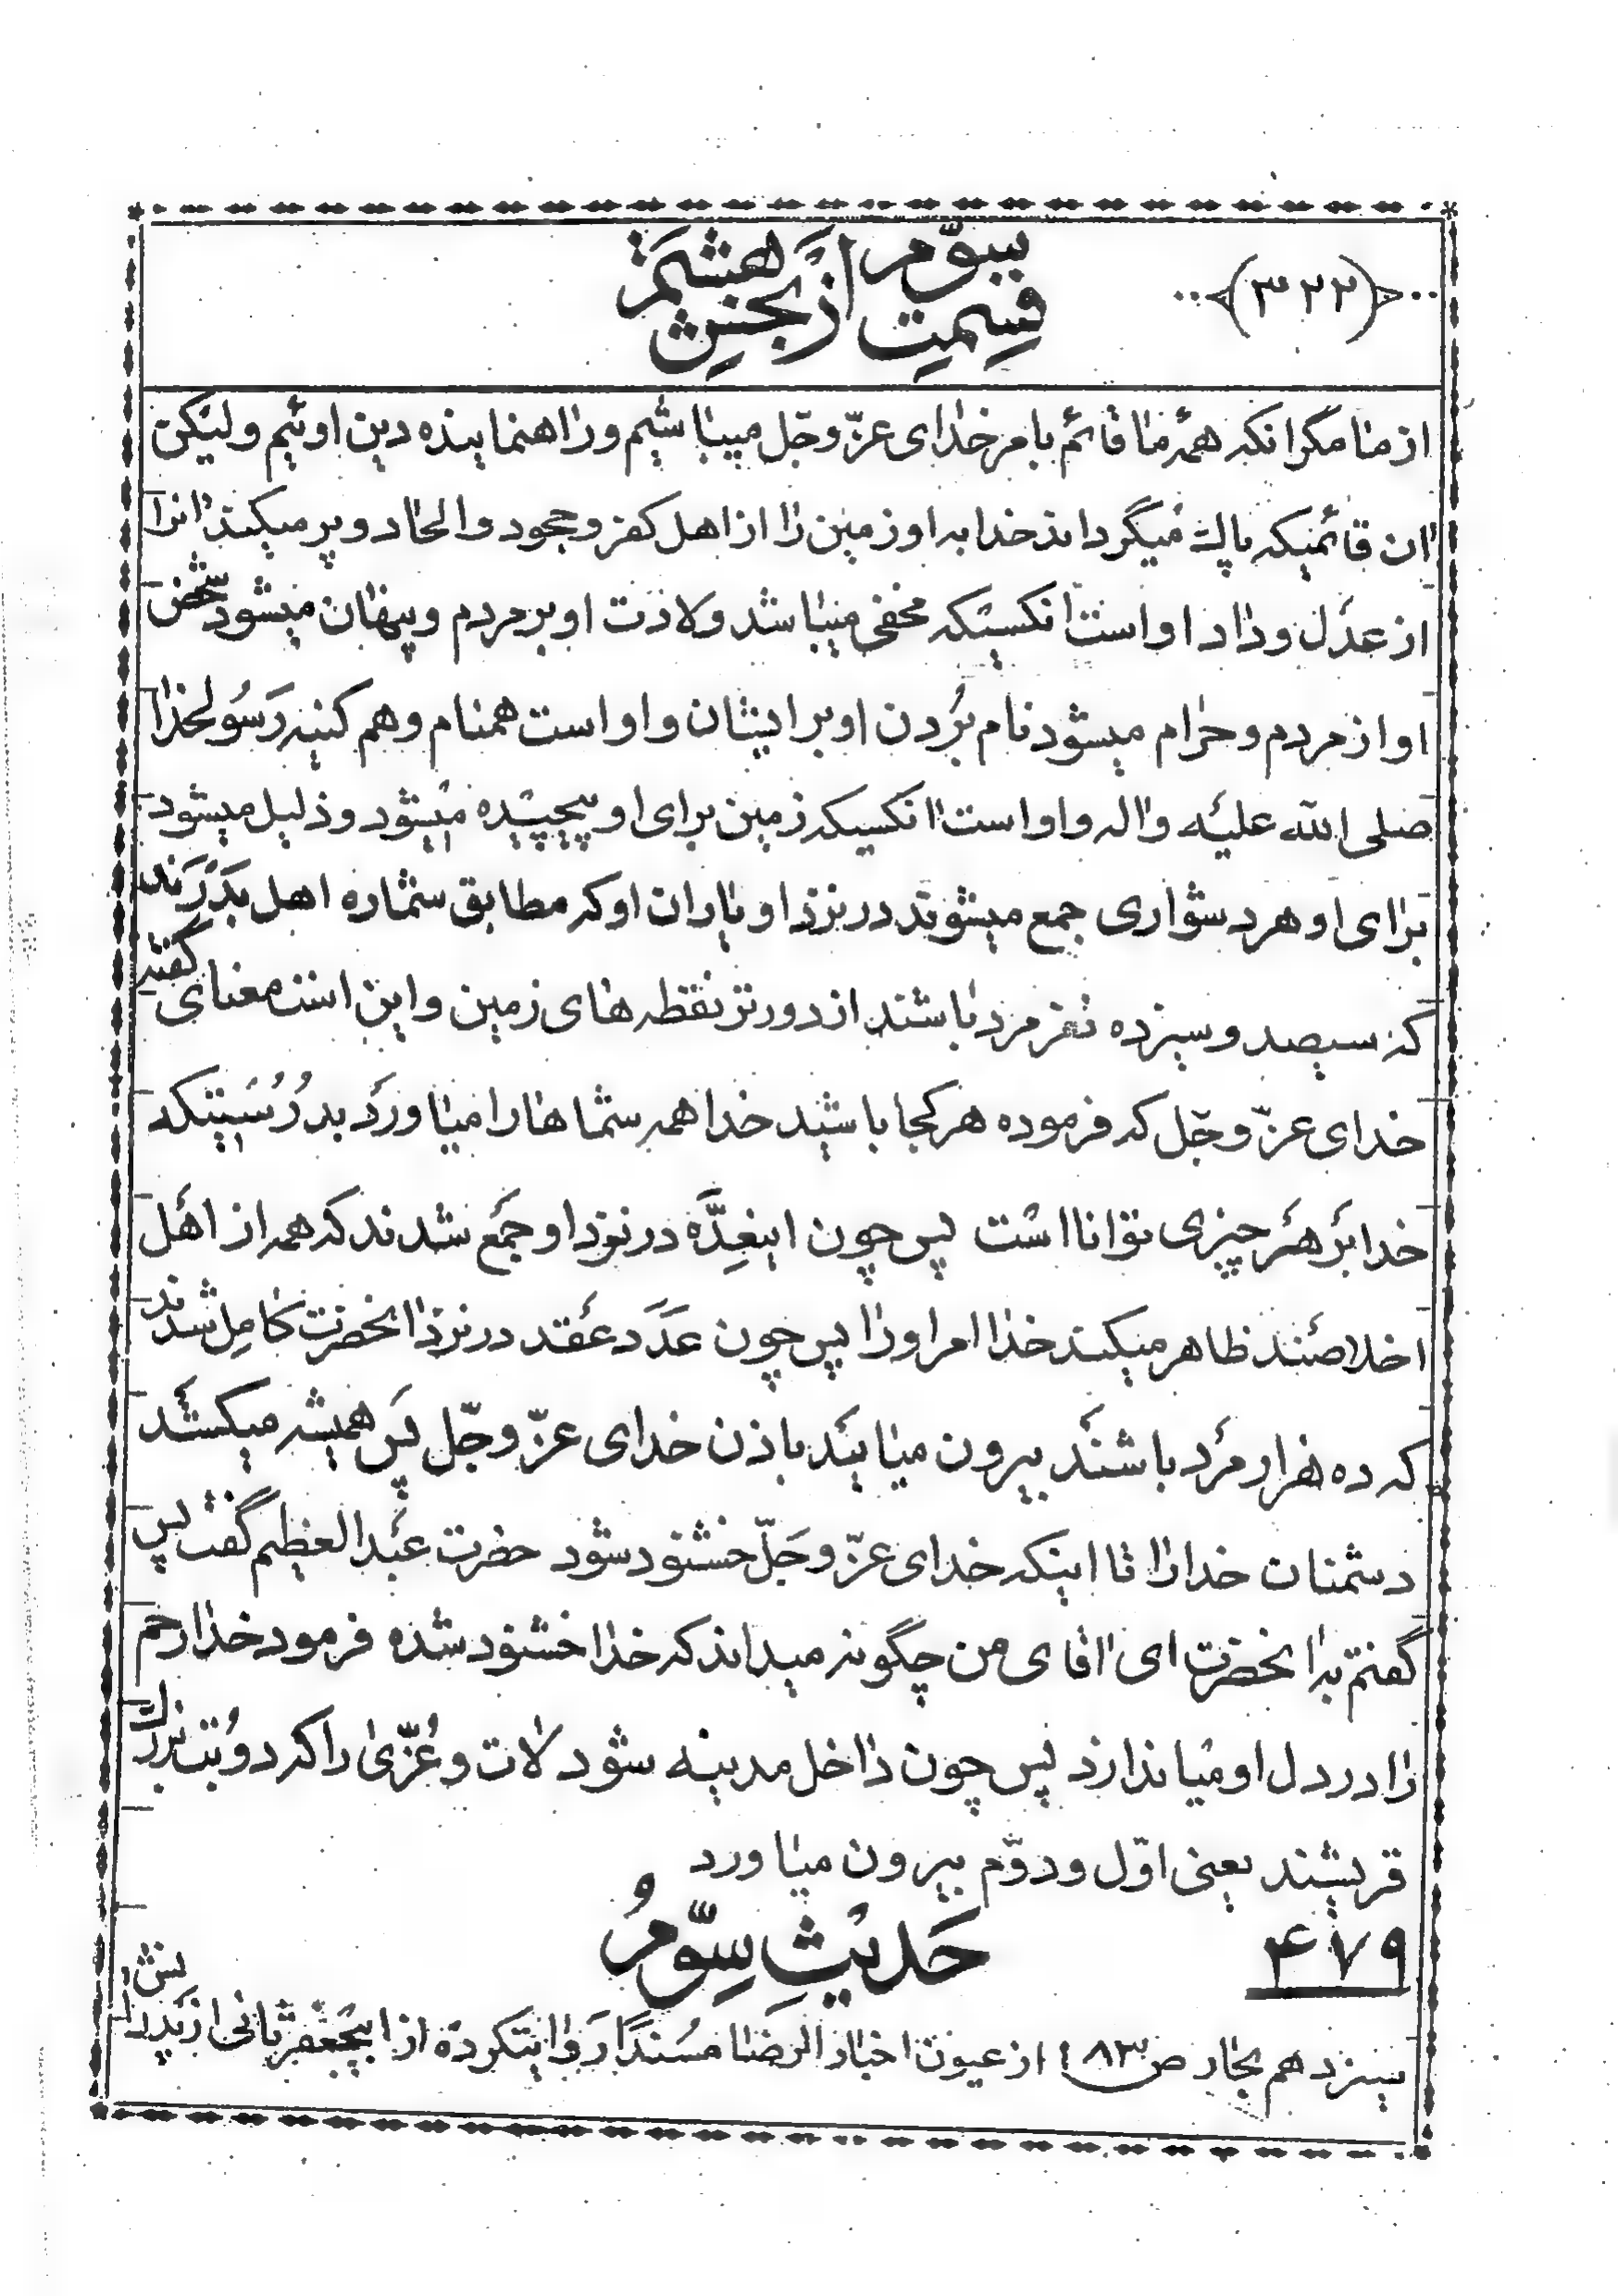 (۳۲۲)
قسمت سوّم از بخش هشتم
از ما مگر انکه همهٔ ما قائم بامر خدای عزّ و جّل میباشیم و راهنماینده دین اوئیم ولیکن
ان قائمیکه پاک میگرداند خدا به او زمین را از اهل کفر و جحود و الحاد و پر میکند انرا
از عدل و داد او است انکسیکه مخفی میباشد ولادت او بر مردم و پنهان میشود شخص
او از مردم و حرام میشود نام بُردن او بر ایشان و او است همنام و هم کنیه رَسُولخدا
صلی الله علیه و اله و او است انکسیکه زمین برای او پیچیده میشود و ذلیل میشود
برای او هر دشواری جمع میشوند در نزد او یاران او که مطابق شماره اهل بَدْرَند
که سیصد و سیزده نفر مرد باشند از دورتر نقطه های زمین و این است معنای گفته
خدای عزّ و جّل که فرموده هر کجا باشید خدا همه شماها را میاورد بدرُسَتیکه
خدا بَر هَر چیزی توانا است پس چون اینعِدَّه در نزد او جَمع شدند که همه از اهل
اخلاصند ظاهر میکند خدا امر او را پس چون عَدَد عَقد در نزد انحضرت کامِل شدند
که ده هزار مَرد باشند بیرون میایند باذن خدای عزّ و جّل پَس همیشه میکشَد
دشمنان خدا را تا اینکه خدای عزّ و جَلّ خشنود شود حضرت عَبد العظیم گفت پس
گفتم به انحضرت ای اقای من چگونه میداند که خدا خشنود شده فرمود خدا رحم
را در دل او میاندازد پس چون داخل مدینه شود لات و عُزّی را که دو بُت بزرگ
قریشند یعنی اوّل و دوّم بیرون میاورد
۴۷۹ حَدیثِ سِوّمُ
سیزدهم بحار ص ۱۸۳ از عیون اخبار الرضا مسُنداً رَوایتکرده از ابیجَعفَر ثانی از پدرانش